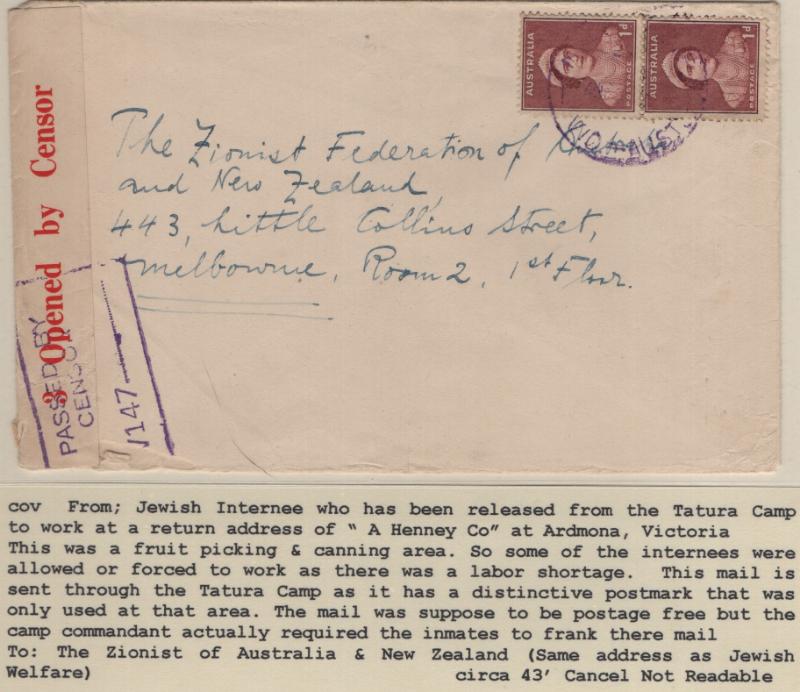 AUSTRALIA 1d POSTAGE
AUSTRALIA 1d POSTAGE
The Zionist Federation of
and New Zealand,
443, Little Collins Street,
Melbourne, Room 2, 1st Floor.
3 Opened by Censor
PASSED BY
CENSOR
V147
cov From; Jewish Internee who has been released from the Tatura Camp
to work at a return address of “ A Henney Co” at Ardmona, Victoria
This was a fruit picking & canning area. So some of the internees were
allowed or forced to work as there was a labor shortage. This mail is
sent through the Tatura Camp as it has a distinctive postmark that was
only used at that area. The mail was suppose to be postage free but the
camp commandant actually required the inmates to frank there mail
To: The Zionist of Australia & New Zealand (Same address as Jewish
Welfare) circa 43’ Cancel Not Readable